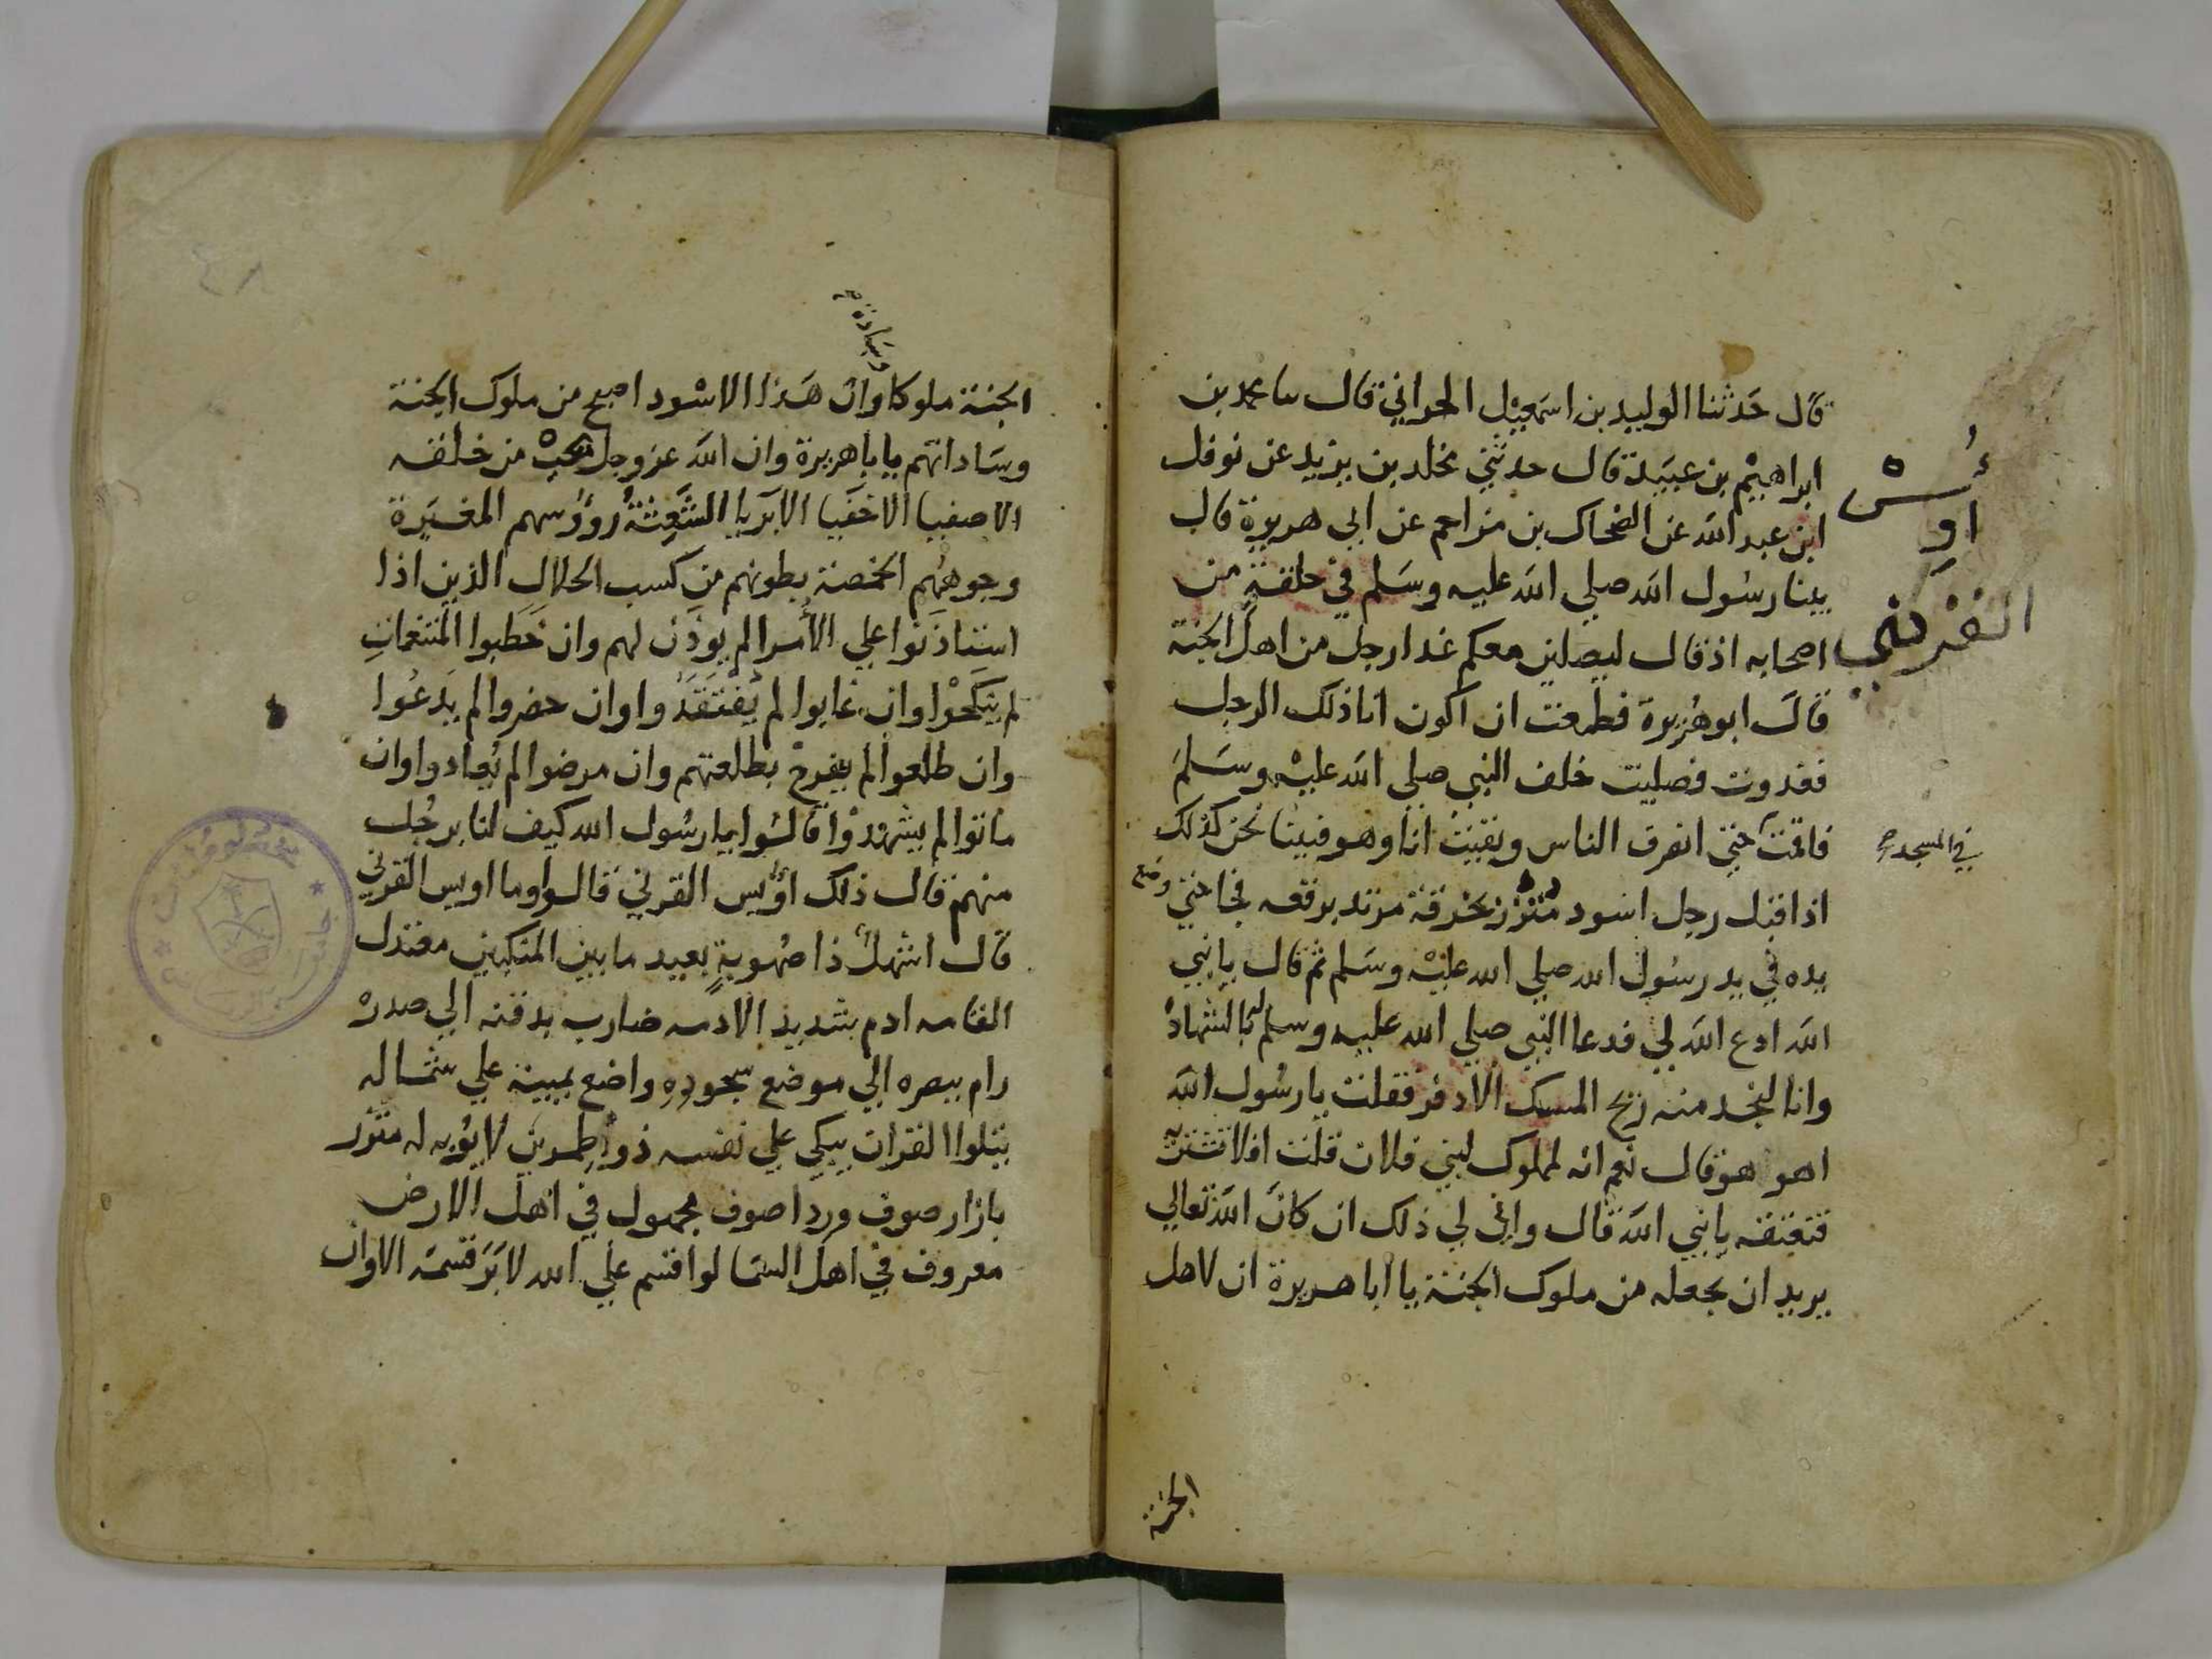 قال حدثنا الوليد بن اسمعيل الحراني قال سا محمد بن
ابراهيم بن عبيدة قال حدثني مخلد بن يزيد عن نوفل
ابن عبد الله عن الضحاك بن مزاحم عن ابي هريرة قال
بينا رسول الله صلي الله عليه وسلم في حلقة من
اصحابه اذ قال ليصلين معكم غدا رجل من اهل الجنة
قال ابو هريرة فطمعت ان اكون انا ذلك الرجل
فغدوت فصليت خلف النبي صلي الله عليه وسلم
فاقمت حتي انصرف الناس وبقيت انا وهو فبينا نحن كذلك
اذ اقبل رجل اسود متزر بخرقة مرتد برقعه فجا حتي وضع
يده في يد رسول الله صلي الله عليه وسلم ثم قال يا نبي
الله ادع الله لي فدعا النبي صلي الله عليه وسلم له بالشهادة
وانا لنجد منه ريح المسك الادفر فقلت يا رسول الله
اهو هو قال نعم انه لمملوك لبني فلان قلت افلا تشتريه
فتعتقه يا نبي الله قال واني لي ذلك ان كان الله تعالي
يريد ان يجعله من ملوك الجنة يا ابا هريرة ان لاهل
اويس
القرني
في المسجد صح
الجنة
وسادة صح
الجنة ملوكا وان هذا الاسود اصبح من ملوك الجنة
وساداتهم يا باهريرة وان الله عز وجل يحب من خلقه
الاصفيا الاخفيا الابريا الشعثة رؤوسهم المغبرة
وجوههم الخمصة بطونهم من كسب الحلال الذين اذا
استاذنوا علي الأمرا لم يوذن لهم وان خطبوا المتنعمات
لم ينكحوا وان غابوا لم يفتقدوا وان حضروا لم يدعوا
وان طلعوا لم يفرح بطلعتهم وان مرضوا لم يعادوا وان
ماتوا لم يشهدوا قالوا يا رسول الله كيف لنا برجل
منهم قال ذلك اويس القرني قالوا وما اويس القرني
قال اشهل ذا صهوبة بعيد ما بين المنكبين معتدل
القامه ادم شديد الادمه ضارب بدقنه الي صدره
رام ببصره الي موضع سجوده واضع يمينه علي شماله
يتلوا القران يبكي علي نفسه ذو اطمرين لا يؤبه له متزر
بازار صوف وردا صوف مجهول في اهل الارض
معروف في اهل السما لو اقسم علي الله لابر قسمه الا وان